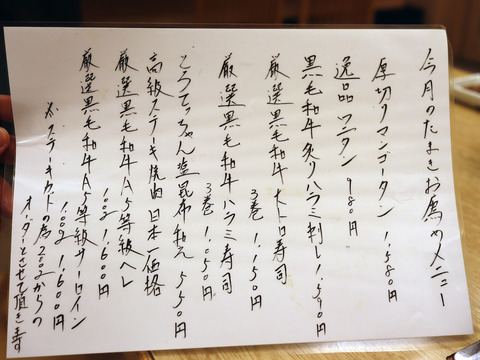 今月のたまきお薦めメニュー
厚切りマンゴータン 1,580円
逸品ワニタン 980円
黒毛和牛炙りハラミ刺し1,590円
厳選黒毛和牛大トロ寿司
3巻 1,150円
厳選黒毛和牛ハラミ寿司
3巻 1,050円
こうてっちゃん塩昆布和え 550円
高級ステーキ焼肉 日本一価格
厳選黒毛和牛A5等級ヘレ
100g 1,600円
厳選黒毛和牛A5等級サーロイン
100g 1,600円
※ステーキカットの為200gからの
オーダーとさせて頂きます